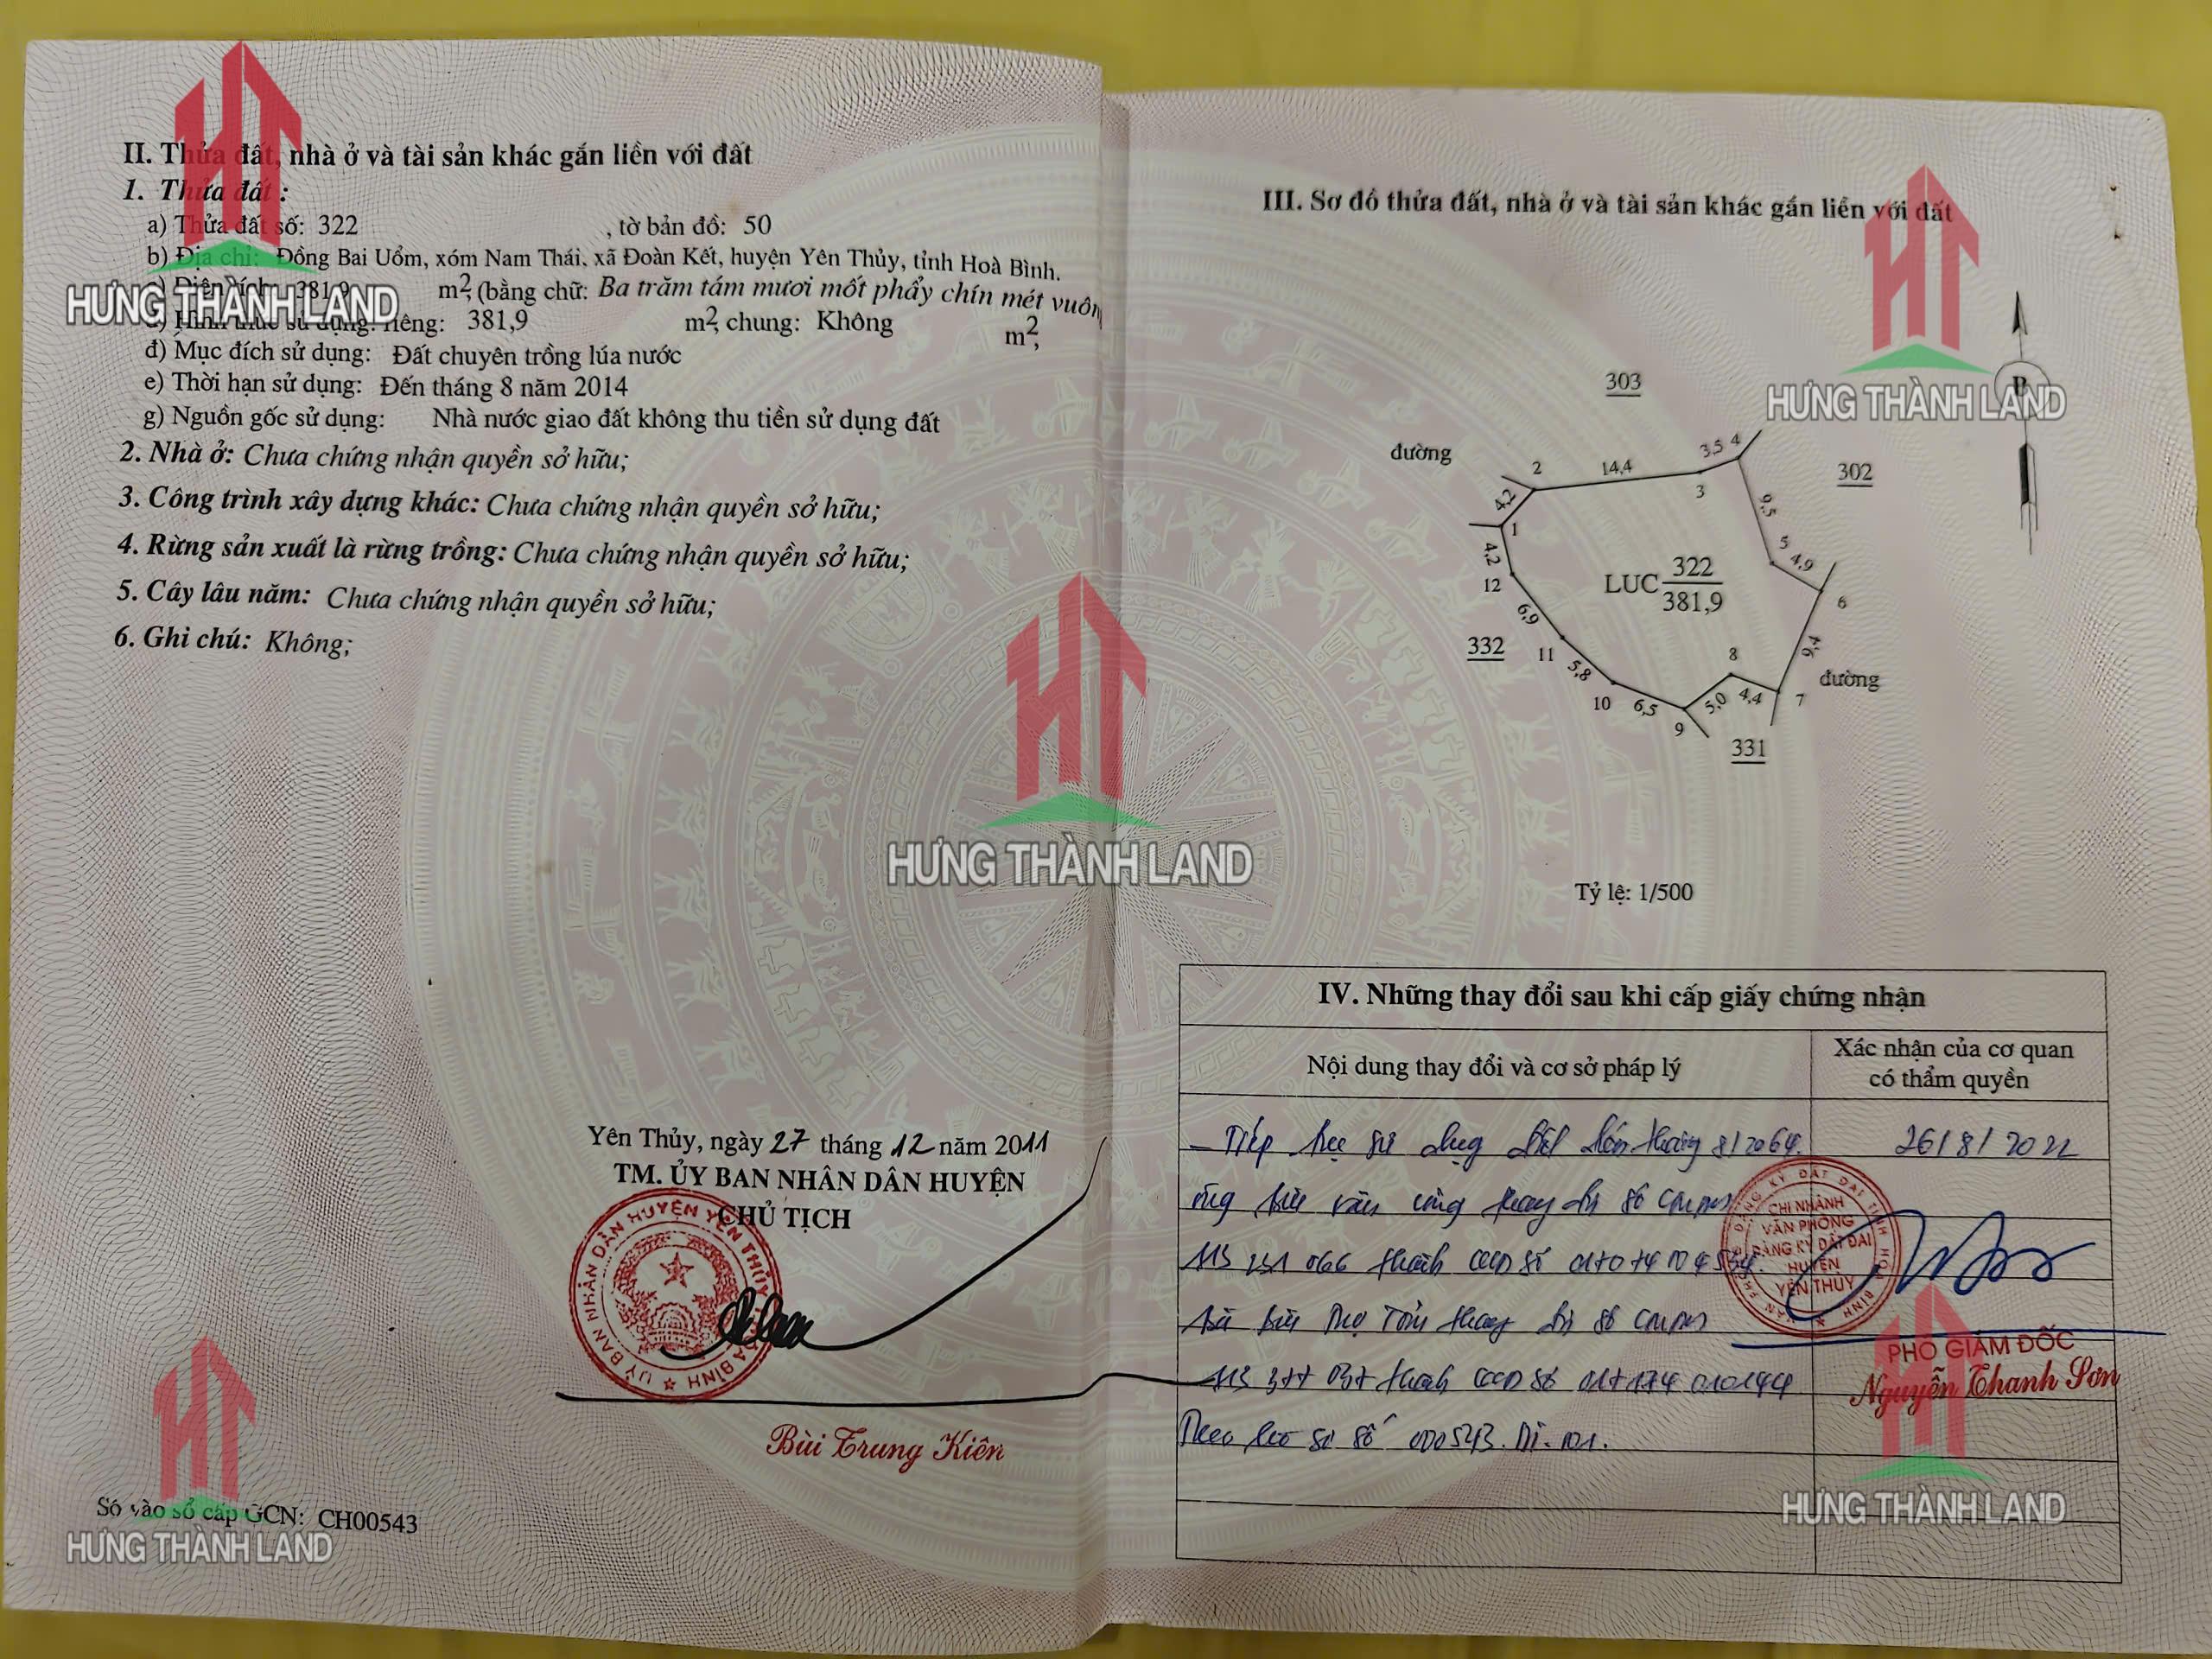 II. Thửa đất, nhà ở và tài sản khác gắn liền với đất
1. Thửa đất :
a) Thửa đất số: 322 , tờ bản đồ: 50
b) Địa chỉ: Đồng Bai Uổm, xóm Nam Thái, xã Đoàn Kết, huyện Yên Thủy, tỉnh Hoà Bình.
c) Diện tích: 381,9 m², (bằng chữ: Ba trăm tám mươi mốt phẩy chín mét vuông
d) Hình thức sử dụng: riêng: 381,9 m², chung: Không m²,
đ) Mục đích sử dụng: Đất chuyên trồng lúa nước
e) Thời hạn sử dụng: Đến tháng 8 năm 2014
g) Nguồn gốc sử dụng: Nhà nước giao đất không thu tiền sử dụng đất
2. Nhà ở: Chưa chứng nhận quyền sở hữu;
3. Công trình xây dựng khác: Chưa chứng nhận quyền sở hữu;
4. Rừng sản xuất là rừng trồng: Chưa chứng nhận quyền sở hữu;
5. Cây lâu năm: Chưa chứng nhận quyền sở hữu;
6. Ghi chú: Không;
Yên Thủy, ngày 27 tháng 12 năm 2011
TM. ỦY BAN NHÂN DÂN HUYỆN
CHỦ TỊCH
ỦY BAN NHÂN DÂN HUYỆN YÊN THỦY
Bùi Trung Kiên
Số vào sổ cấp GCN: CH00543
III. Sơ đồ thửa đất, nhà ở và tài sản khác gắn liền với đất
B
303
đường
302
2
14,4
3,5
4
3
4,2
1
9,5
5
4,9
4,2
12
LUC 322
381,9
6
6,9
332
11
8
9,4
5,8
đường
10
6,5
5,0
4,4
7
9
331
Tỷ lệ: 1/500
IV. Những thay đổi sau khi cấp giấy chứng nhận
Nội dung thay đổi và cơ sở pháp lý
Xác nhận của cơ quan
có thẩm quyền
- Tiếp tục sử dụng đất đến tháng 8/2064.
ông Bùi Văn
thay đổi số CMND
thành CCCD số
thay đổi số CMND
thành CCCD số
Theo hồ sơ số 000543.
CHI NHÁNH
VĂN PHÒNG
ĐĂNG KÝ ĐẤT ĐAI
HUYỆN
YÊN THỦY
PHÓ GIÁM ĐỐC
Nguyễn Thanh Sơn
HƯNG THÀNH LAND
HƯNG THÀNH LAND
HƯNG THÀNH LAND
HƯNG THÀNH LAND
HƯNG THÀNH LAND